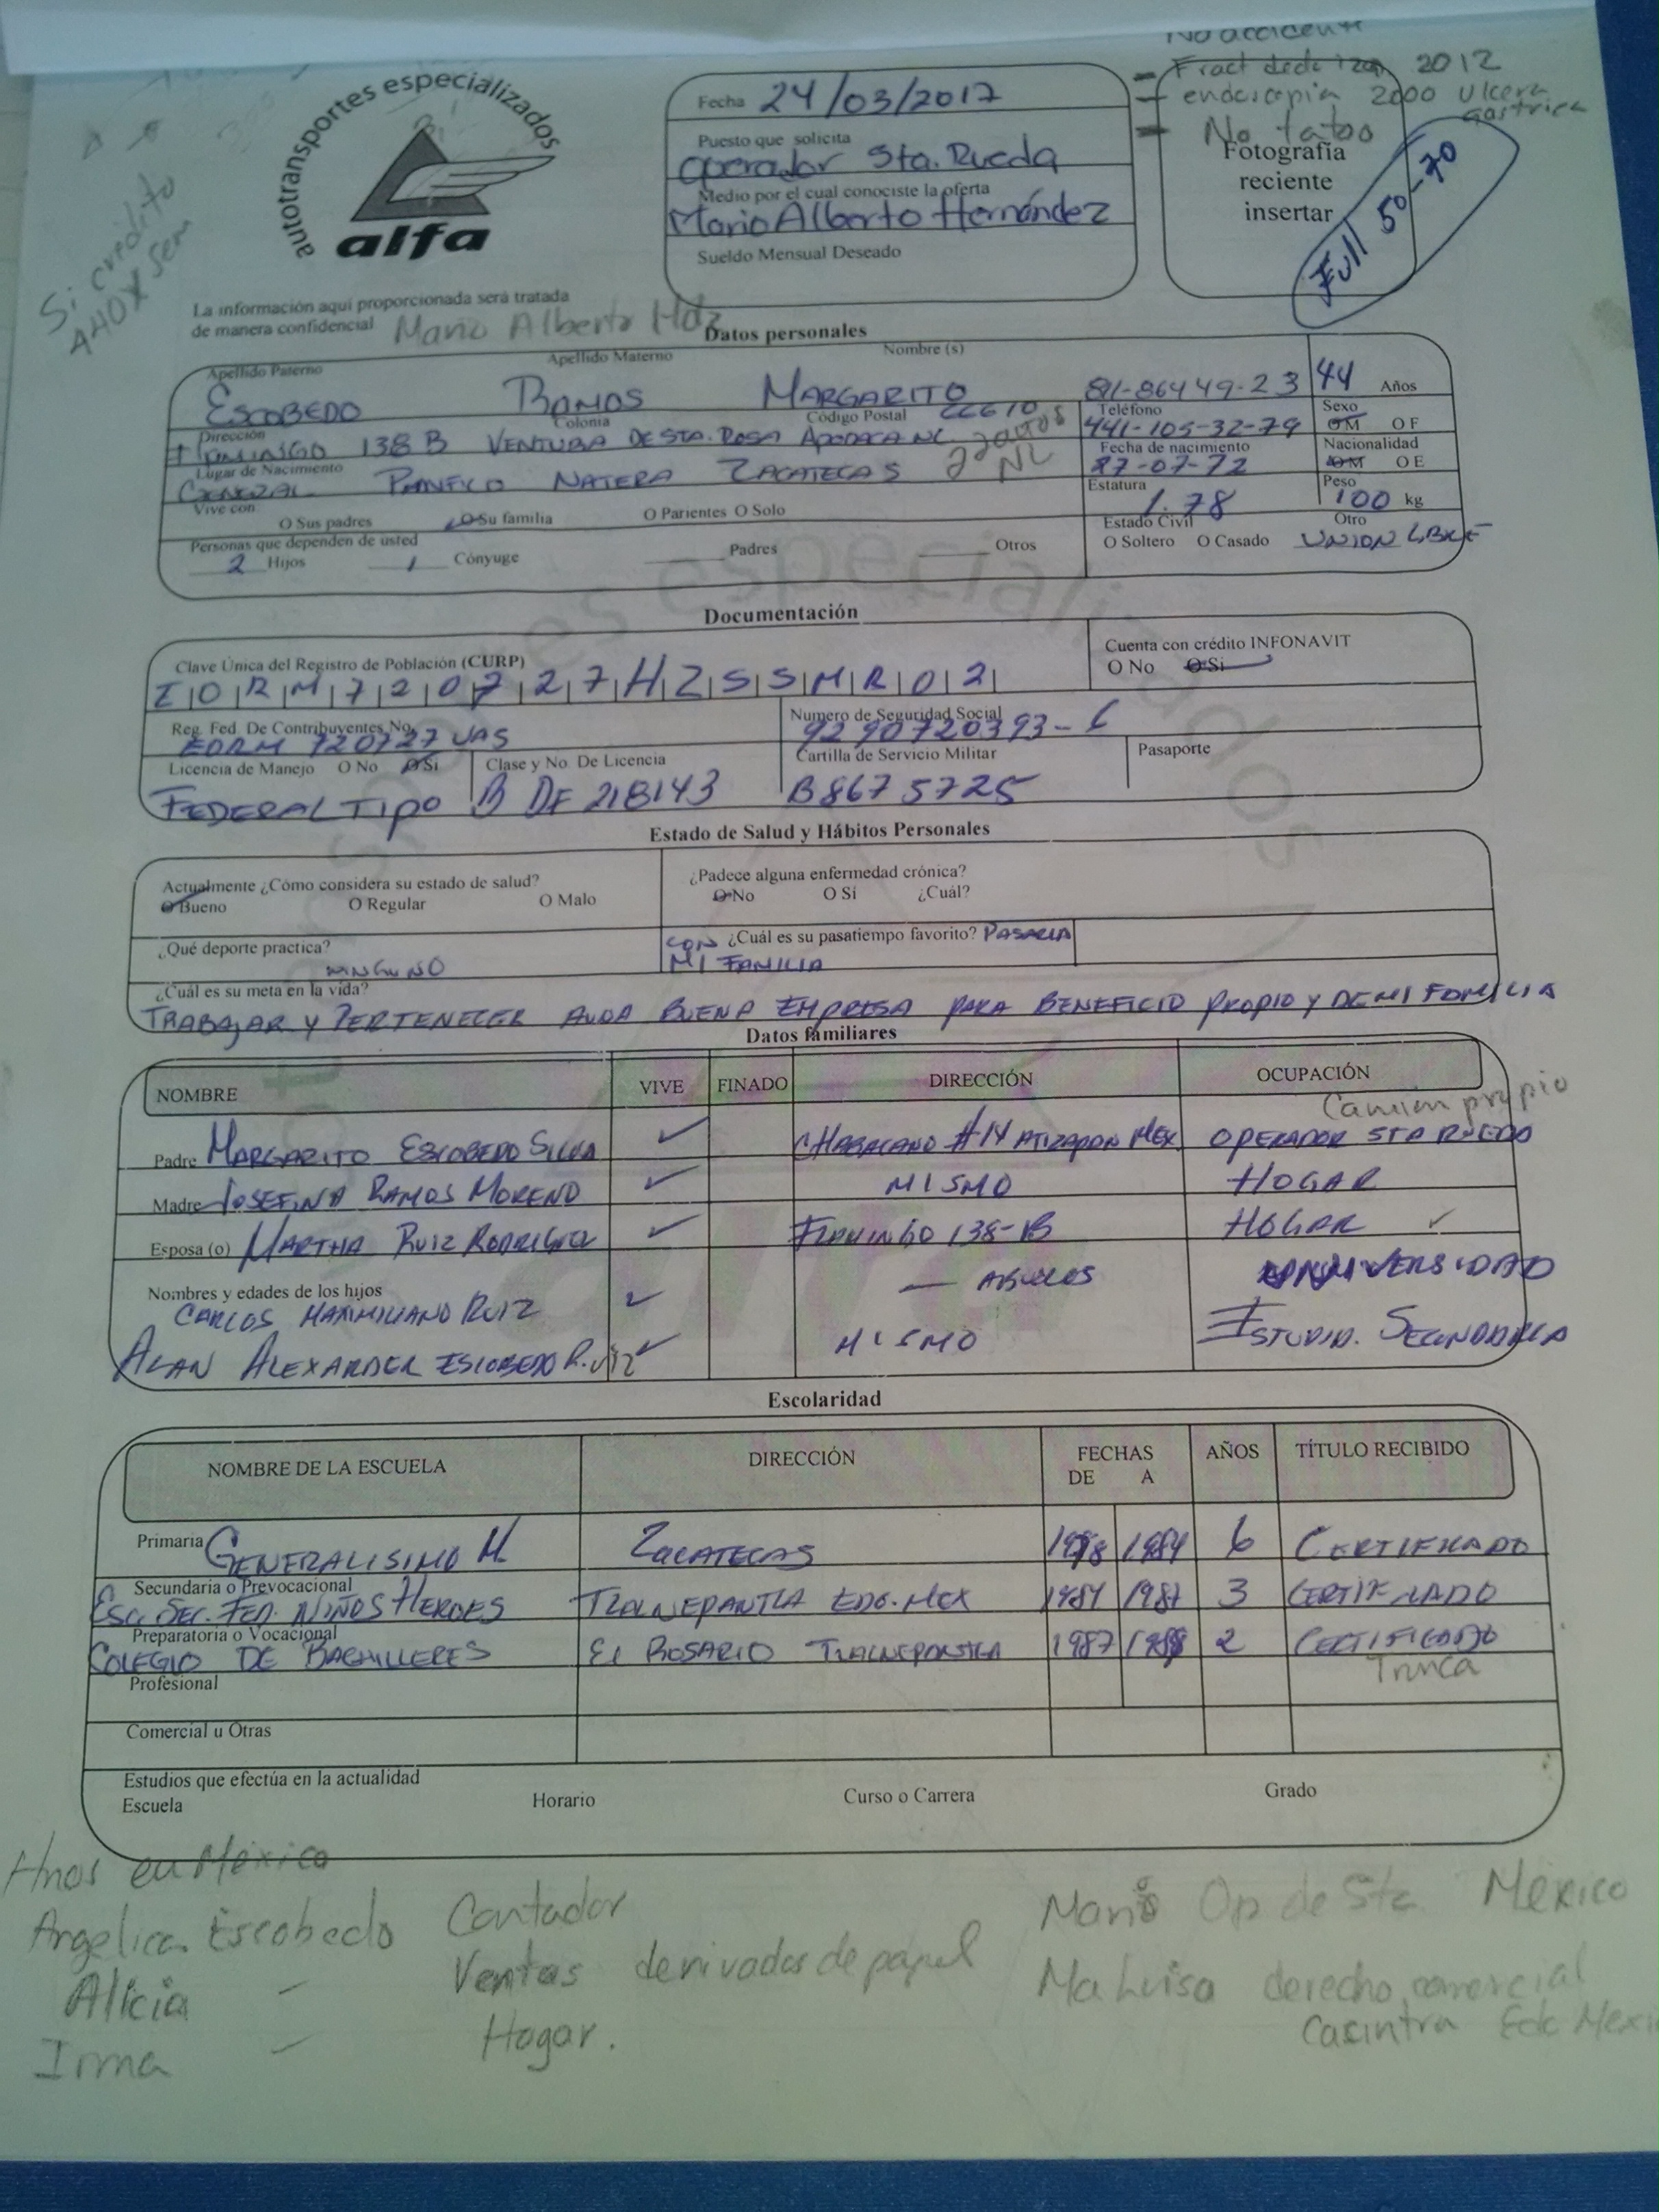 No accident
- Fract dedo izq 2012
- endoscopia 2000 Ulcera
gastrica
- No tatoo
autotransportes especializados
alfa
Si crédito
Fecha 24/03/2017
Puesto que solicita
operador Sta. Rueda
Medio por el cual conociste la oferta
Mario Alberto Hernández
Sueldo Mensual Deseado
Fotografía
reciente
insertar
Full 50-70
La información aquí proporcionada será tratada
de manera confidencial Mario Alberto Hdz
Datos personales
Apellido Paterno Apellido Materno Nombre (s)
ESCOBEDO RAMOS MARGARITO 44 Años
Dirección Colonia Código Postal Teléfono Sexo
138 B VENTURA DE STA. ROSA APODACA NL 441-105-32-79 O M O F
Lugar de Nacimiento Fecha de nacimiento Nacionalidad
GENERAL PANFILO NATERA ZACATECAS NL 27-07-72 O M O E
Vive con Estatura Peso
O Sus padres O Su familia O Parientes O Solo 1.78 100 kg
Personas que dependen de usted Estado Civil Otro
2 Hijos 1 Cónyuge Padres Otros O Soltero O Casado UNION LIBRE
Documentación
Clave Única del Registro de Población (CURP) Cuenta con crédito INFONAVIT
O No O Si
Reg. Fed. De Contribuyentes No. Numero de Seguridad Social
Licencia de Manejo O No O Si Clase y No. De Licencia Cartilla de Servicio Militar Pasaporte
FEDERAL TIPO B DF 218143 B8675725
Estado de Salud y Hábitos Personales
Actualmente ¿Cómo considera su estado de salud? ¿Padece alguna enfermedad crónica?
O Bueno O Regular O Malo O No O Sí ¿Cuál?
¿Qué deporte practica? ¿Cuál es su pasatiempo favorito? PASARLA
NINGUNO CON MI FAMILIA
¿Cuál es su meta en la vida?
TRABAJAR Y PERTENECER AUNA BUENA EMPRESA PARA BENEFICIO PROPIO Y DE MI FAMILIA
Datos familiares
NOMBRE VIVE FINADO DIRECCIÓN OCUPACIÓN
Camion propio
Padre MARGARITO ESCOBEDO SILVA ✓ CHABACANO #14 ATIZAPAN MEX. OPERADOR STA RUEDA
Madre JOSEFINA RAMOS MORENO ✓ MISMO HOGAR
Esposa (o) MARTHA RUIZ RODRIGUEZ ✓ FLAMINGO 138-B HOGAR ✓
Nombres y edades de los hijos
CARLOS MAXIMILIANO RUIZ ✓ — ABUELOS UNIVERSIDAD
ALAN ALEXANDER ESCOBEDO RUIZ ✓ MISMO ESTUDIA. SECUNDARIA
Escolaridad
NOMBRE DE LA ESCUELA DIRECCIÓN FECHAS AÑOS TÍTULO RECIBIDO
DE A
Primaria GENERALISIMO M. ZACATECAS 1978 1984 6 CERTIFICADO
Secundaria o Prevocacional
ESC. SEC. FED. NIÑOS HEROES TLALNEPANTLA EDO. MEX 1984 1987 3 CERTIFICADO
Preparatoria o Vocacional
COLEGIO DE BACHILLERES EL ROSARIO TLALNEPANTLA 1987 2 CERTIFICADO
Trunca
Profesional
Comercial u Otras
Estudios que efectúa en la actualidad
Escuela Horario Curso o Carrera Grado
Hnos en México
Angelica Escobedo Contador Mario Op de Sta México
Alicia - Ventas derivados de papel Ma Luisa derecho comercial
Irma - Hogar.